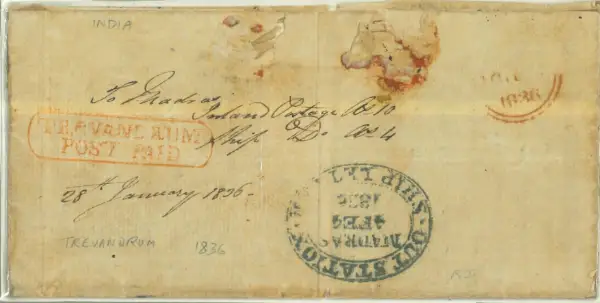 INDIA
To Madras
Inland Postage As 10
Ship Do As 4
TREVANDRUM
POST PAID
1836
28th January 1836
OUT STATION
SHIP LET
MADRAS
4 FE
1836
TREVANDRUM 1836